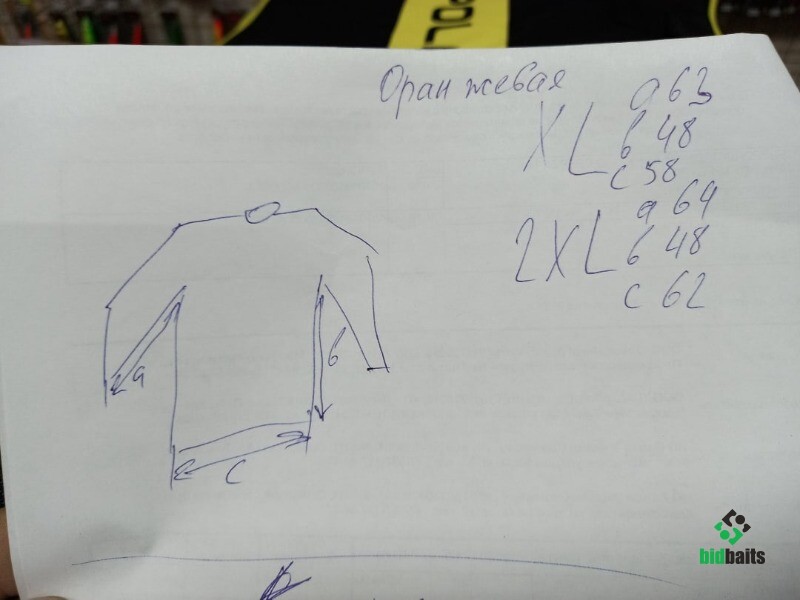 Оранжевая
XL
а 63
б 48
с 58
2XL
а 64
б 48
с 62
а
б
с
bidbaits